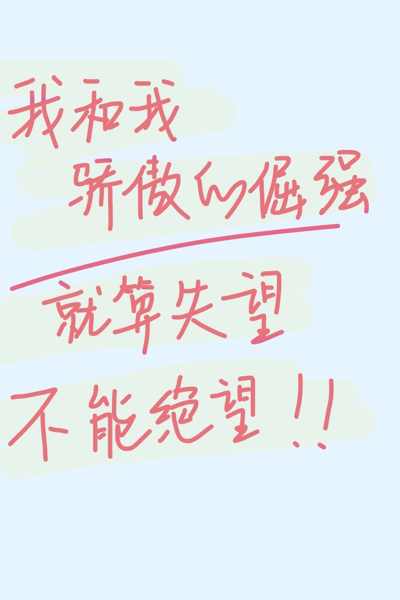 我和我
骄傲的倔强
就算失望
不能绝望！！